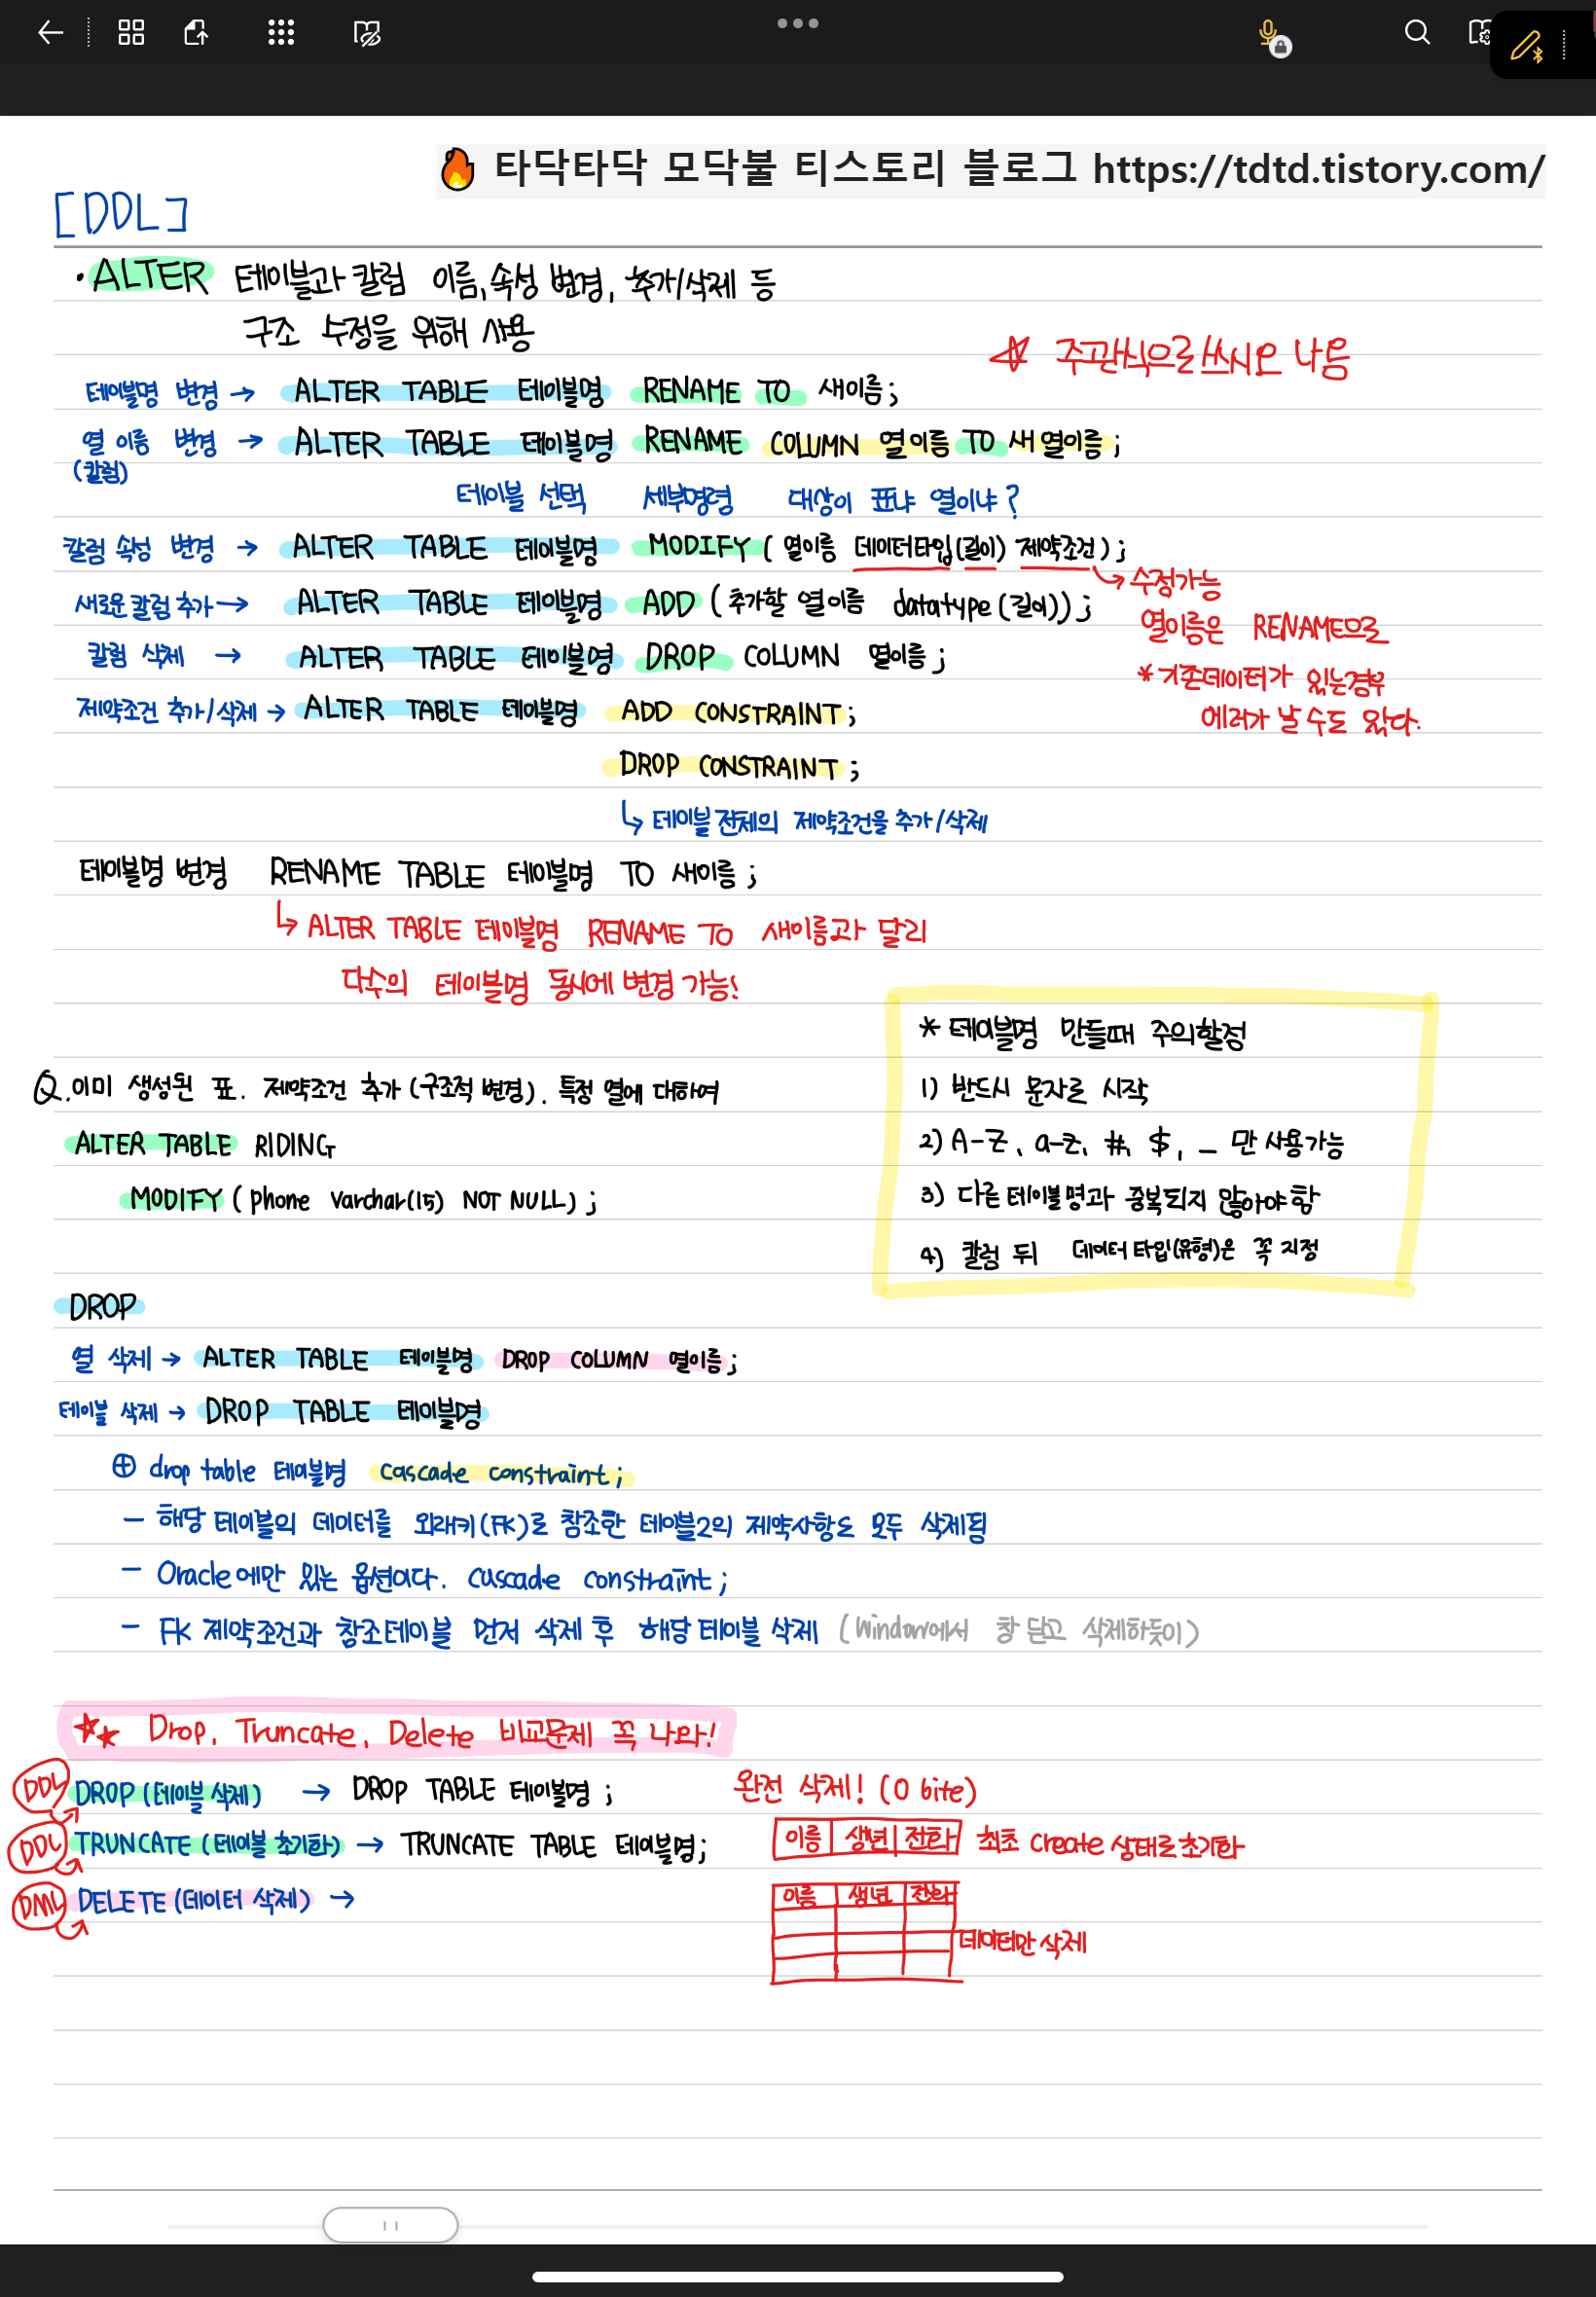 타닥타닥 모닥불 티스토리 블로그 https://tdtd.tistory.com/
[DDL]
· ALTER 테이블과 칼럼 이름, 속성 변경, 추가/삭제 등
구조 수정을 위해 사용
☆ 주관식으로 쓰시오 나옴
테이블명 변경 → ALTER TABLE 테이블명 RENAME TO 새이름;
열 이름 변경 → ALTER TABLE 테이블명 RENAME COLUMN 열이름 TO 새 열이름;
(칼럼)
테이블 선택 세부명령 대상이 표냐 열이냐?
칼럼 속성 변경 → ALTER TABLE 테이블명 MODIFY (열이름 데이터타입(길이) 제약조건);
↳ 수정가능
새로운 칼럼 추가 → ALTER TABLE 테이블명 ADD (추가할 열이름 datatype(길이));
열이름은 RENAME으로
칼럼 삭제 → ALTER TABLE 테이블명 DROP COLUMN 열이름;
* 기존데이터가 있는경우
제약조건 추가/삭제 → ALTER TABLE 테이블명 ADD CONSTRAINT;
에러가 날 수도 있다.
DROP CONSTRAINT;
↳ 테이블 전체의 제약조건을 추가/삭제
테이블명 변경 RENAME TABLE 테이블명 TO 새이름;
↳ ALTER TABLE 테이블명 RENAME TO 새이름과 달리
다수의 테이블명 동시에 변경 가능!
* 테이블명 만들때 주의할점
1) 반드시 문자로 시작
2) A-Z, a-z, #, $, _ 만 사용가능
3) 다른 테이블명과 중복되지 않아야 함
4) 칼럼 뒤 데이터 타입(유형)은 꼭 지정
Q. 이미 생성된 표. 제약조건 추가 (구조적 변경). 특정 열에 대하여
ALTER TABLE RIDING
MODIFY (phone varchar(15) NOT NULL);
DROP
열 삭제 → ALTER TABLE 테이블명 DROP COLUMN 열이름;
테이블 삭제 → DROP TABLE 테이블명
⊕ drop table 테이블명 cascade constraint;
- 해당 테이블의 데이터를 외래키(FK)로 참조한 테이블2의 제약사항도 모두 삭제됨
- Oracle에만 있는 옵션이다. cascade constraint;
- FK 제약조건과 참조테이블 먼저 삭제 후 해당 테이블 삭제 (Window에서 창 닫고 삭제하듯이)
☆☆ Drop, Truncate, Delete 비교문제 꼭 나와!
DDL DROP (테이블 삭제) → DROP TABLE 테이블명; 완전 삭제! (0 bite)
DDL TRUNCATE (테이블 초기화) → TRUNCATE TABLE 테이블명; 이름 생년 전화 최초 create 상태로 초기화
DML DELETE (데이터 삭제) → 이름 생년 전화
데이터만 삭제